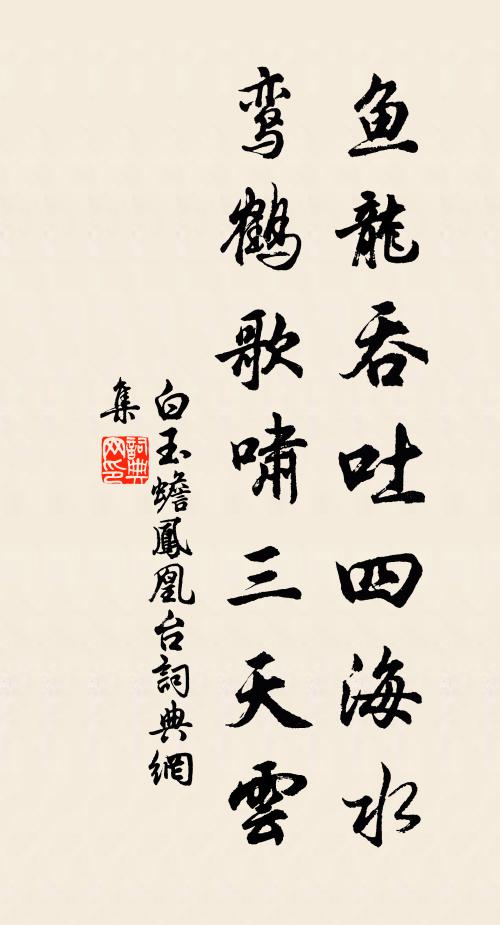 鱼龍吞吐四海水
鸾鶴歌嘯三天雲
白玉蟾鳳凰台詞典網
集
詞典网印